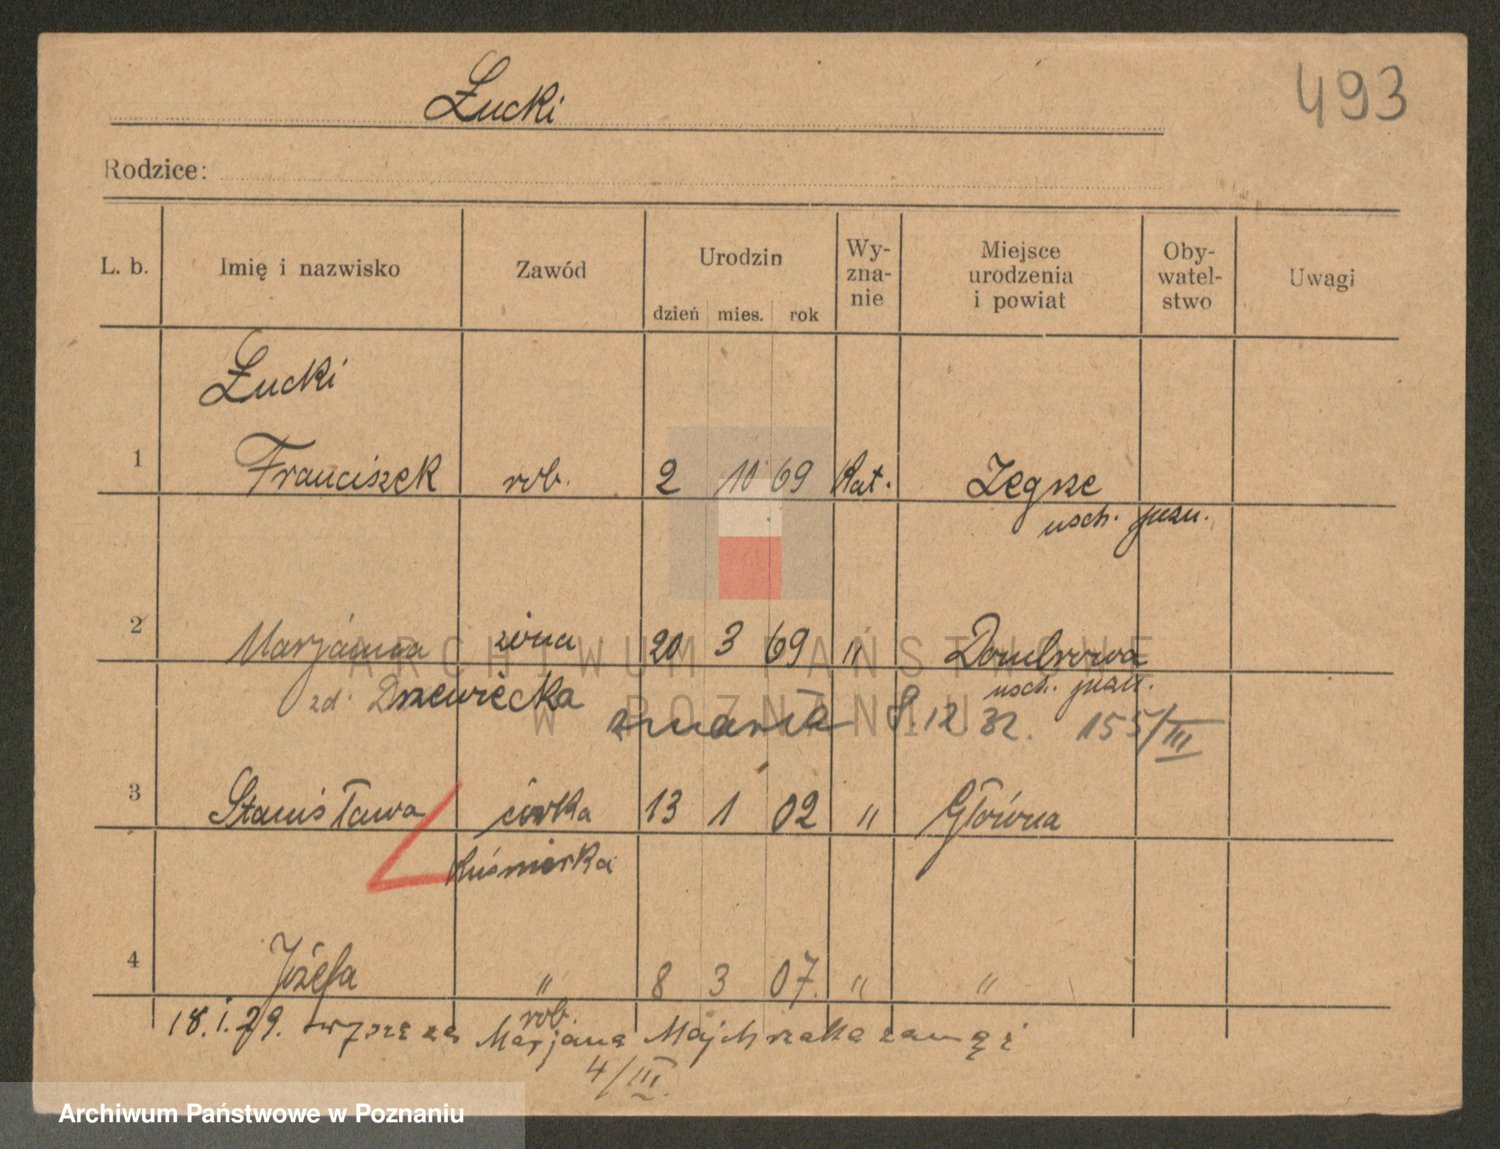 493
Łucki
Rodzice:
L. b. Imię i nazwisko Zawód Urodzin dzień mies. rok Wy-zna-nie Miejsce urodzenia i powiat Oby-watel-stwo Uwagi
Łucki
1 Franciszek rob. 2 10 69 Kat. Zegrze
wsch. pozn.
2 Marjanna żona 20 3 69 " Dombrowa
zd. Drzewiecka wsch. pozn.
zmarła 9.12 32. 155/III
3 Stanisława córka 13 1 02 " Główna
kuśnierka
4 Józefa " 8 3 07. " "
rob.
18.1.29. wyszła za Marjana Majchrzaka zamąż
4/III.
ARCHIWUM PAŃSTWOWE
W POZNANIU
Archiwum Państwowe w Poznaniu